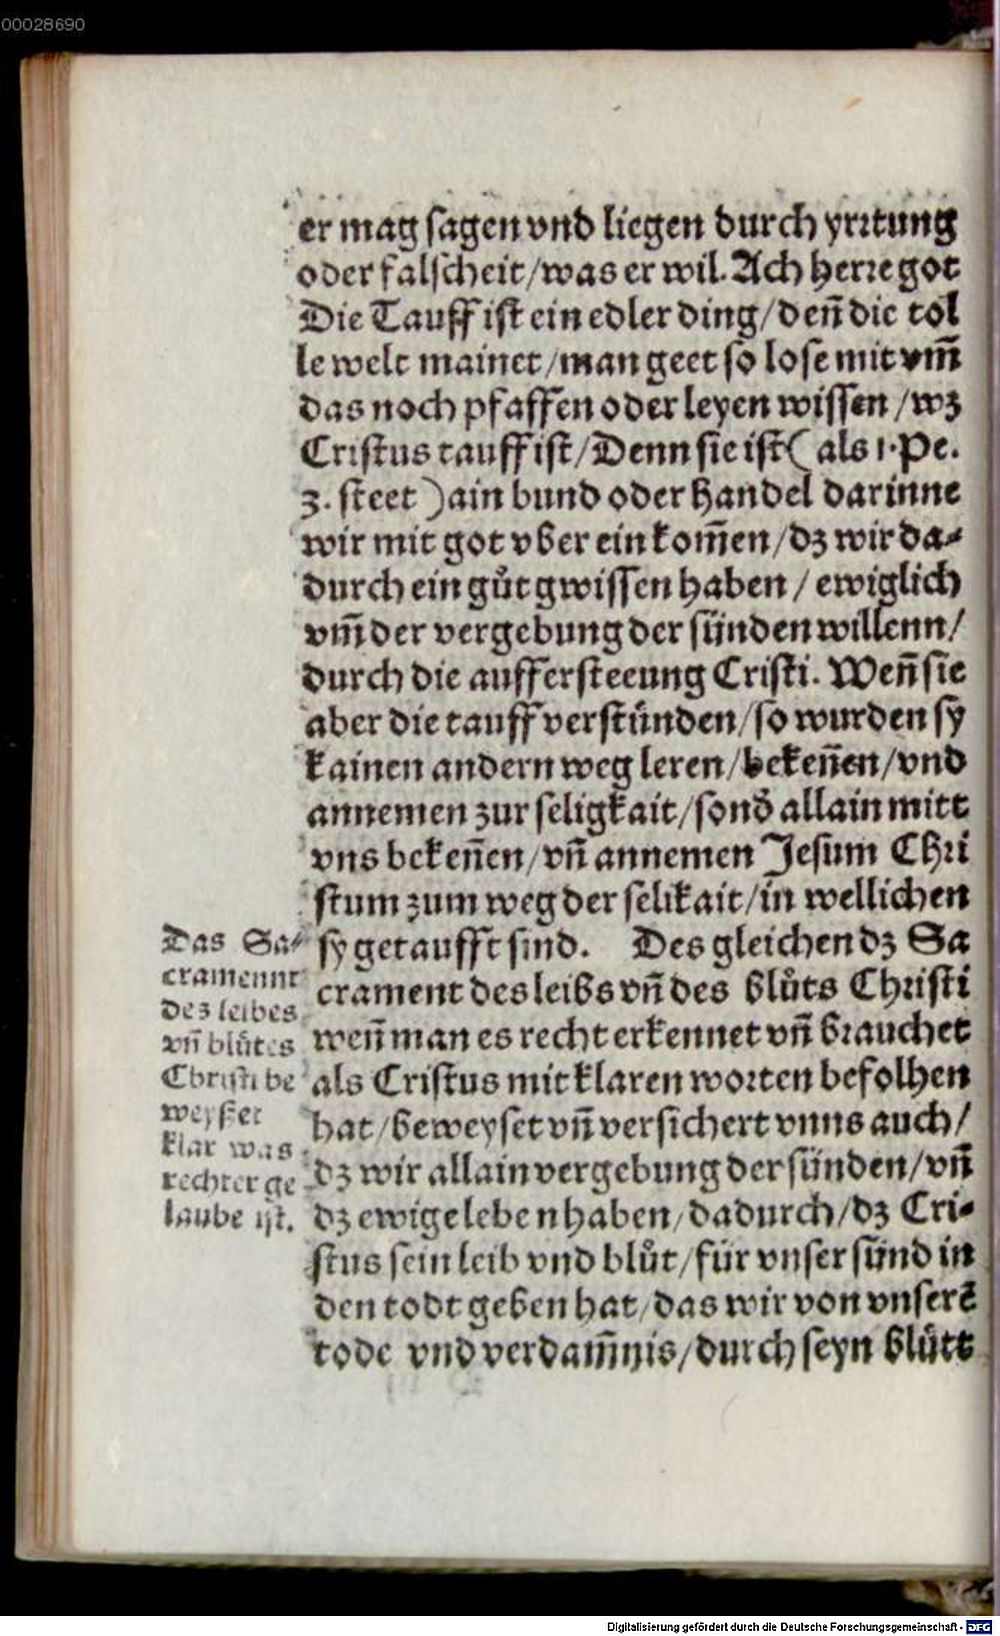 00028690
er mag sagen vnd liegen durch yrrtung
oder falscheit/was er wil. Ach herre got
Die Tauff ist ein edler ding/deñ die tol
le welt mainet/man geet so lose mit vm̃
das noch pfaffen oder leyen wissen/wz
Cristus tauff ist/Denn sie ist (als 1. Pe.
3. steet) ain bund oder handel darinne
wir mit got vber ein kom̃en/dz wir da⸗
durch ein gůt gwissen haben/ewiglich
vm̃ der vergebung der sünden willenn/
durch die auffersteeung Cristi. Weñ sie
aber die tauff verstünden/so wurden sy
kainen andern weg leren/bekeñen/vnd
annemen zur seligkait/sonđ allain mitt
vns bekeñen/vñ annemen Jesum Chri
stum zum weg der selikait/in wellichen
sy getaufft sind. Des gleichen dz Sa
crament des leibs vñ des blůts Christi
weñ man es recht erkennet vñ brauchet
als Cristus mit klaren worten befolhen
hat/beweyset vñ versichert vnns auch/
dz wir allain vergebung der sünden/vñ
dz ewige leben haben/dadurch/dz Cri⸗
stus sein leib vnd blůt/für vnser sünd in
den todt geben hat/das wir von vnserē
tode vnd verdam̃nis/durch seyn blůtt
Das Sa⸗
cramennt
des leibes
vñ blůtes
Christi be
weyset
klar was
rechter ge
laube ist.
Digitalisierung gefördert durch die Deutsche Forschungsgemeinschaft - DFG